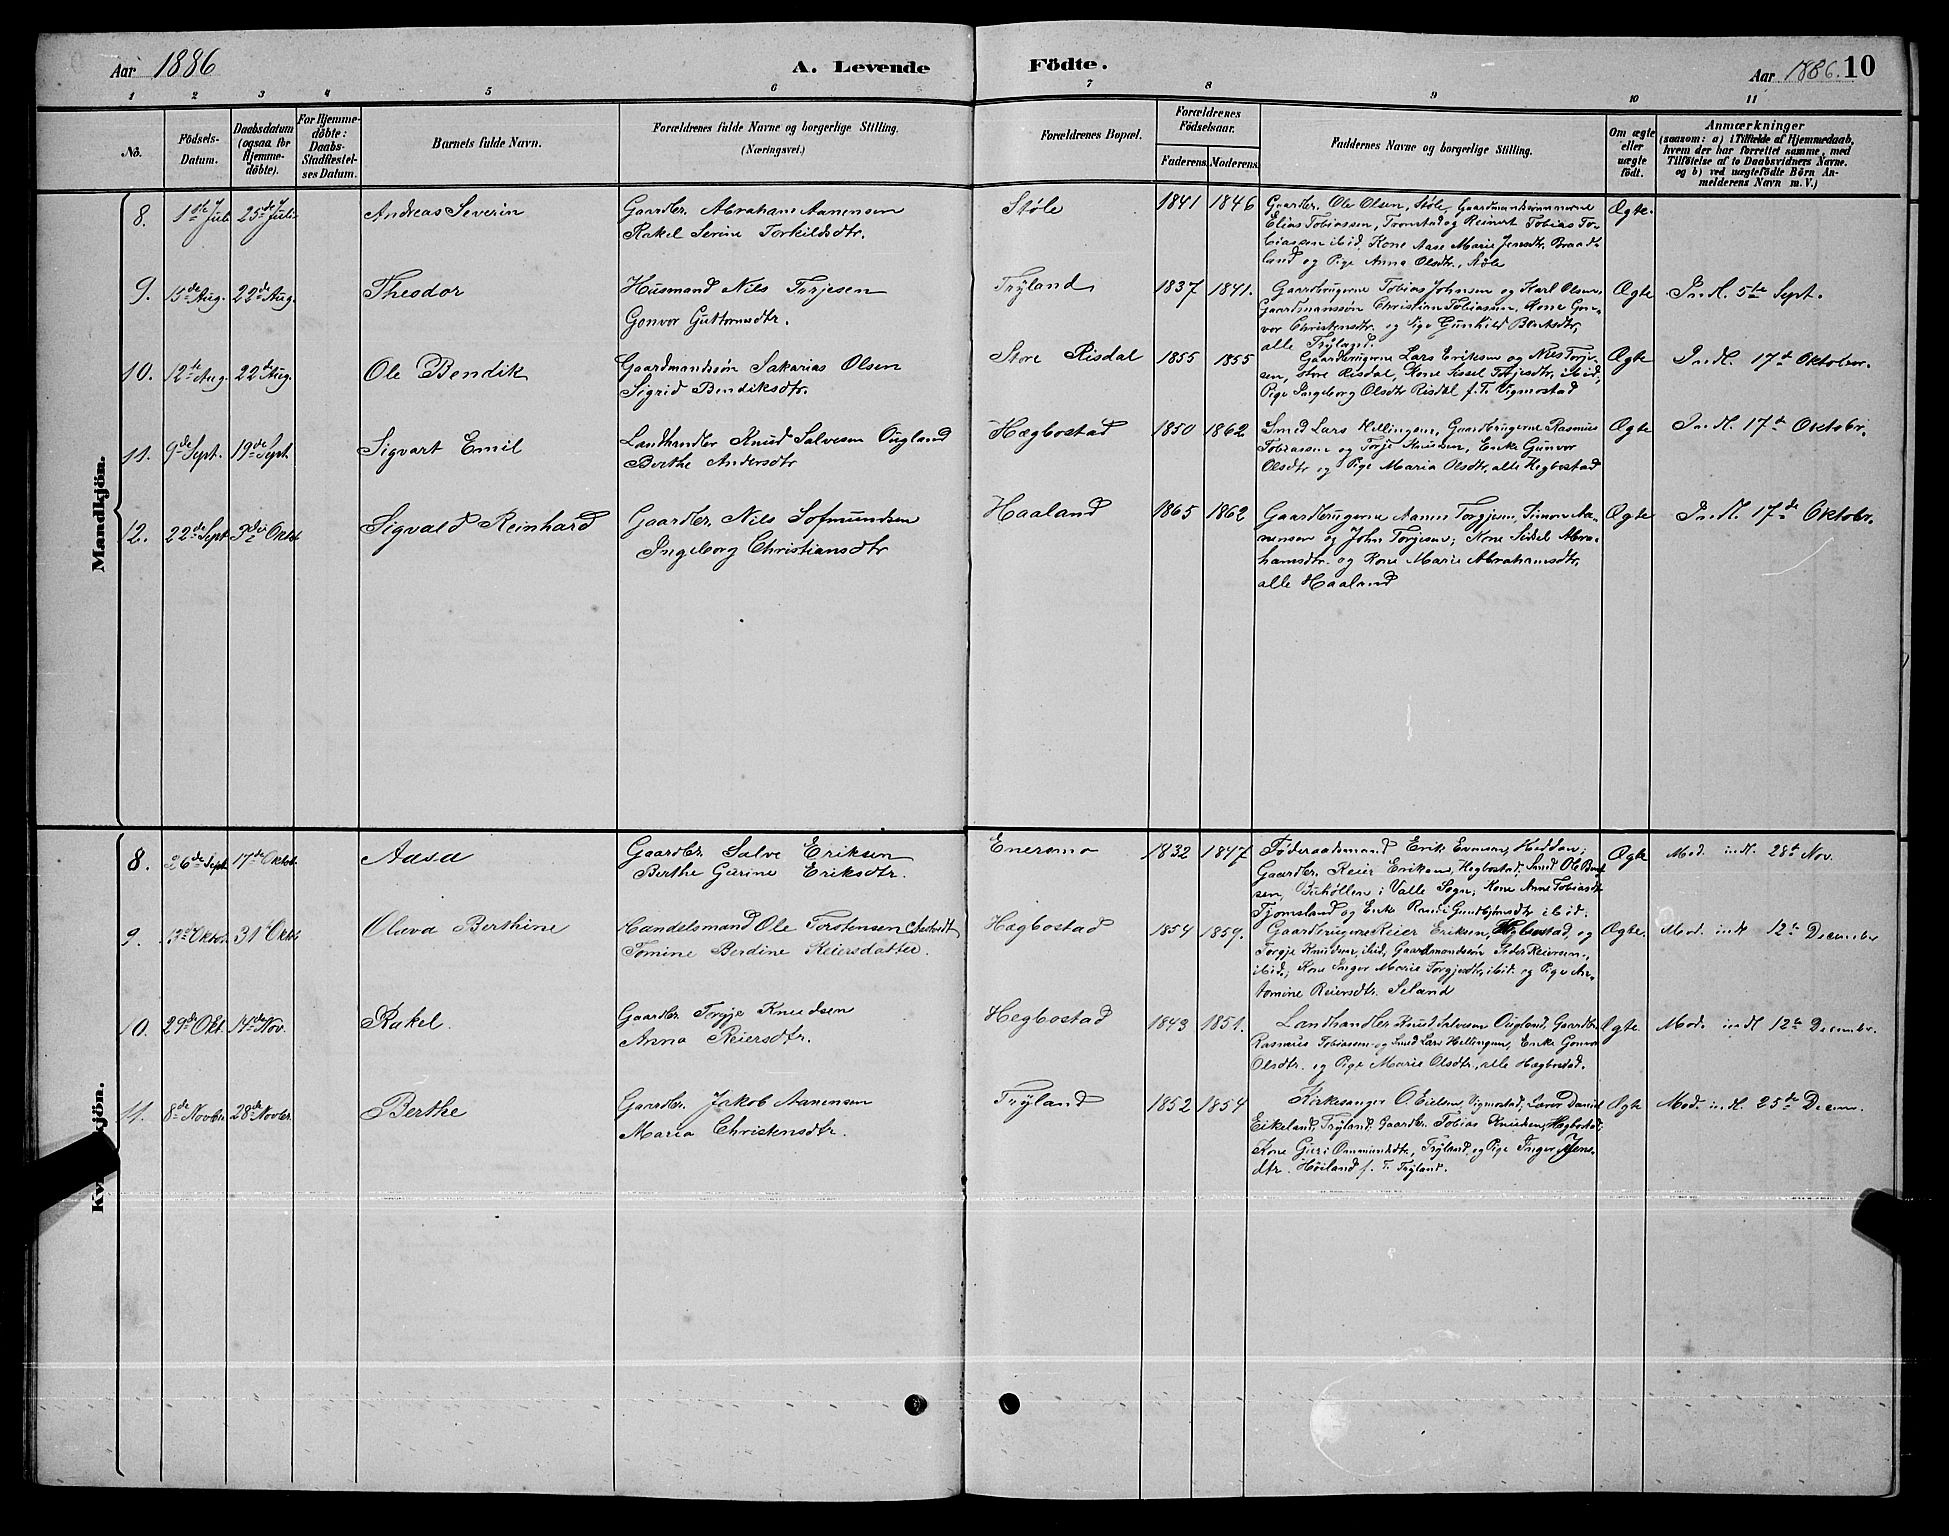 Aar 1886
A. Levende Födte.
Aar 1886. 10
1 2 3 4 5 6 7 8 9 10 11
No.
Födsels-Datum.
Daabsdatum (ogsaa for Hjemme-døbte).
For Hjemme-døbte: Daabs-Stadfæstel-ses Datum.
Barnets fulde Navn.
Forældrenes fulde Navne og borgerlige Stilling.
(Næringsvei.)
Forældrenes Bopæl.
Forældrenes Födselsaar.
Faderens. Moderens.
Faddernes Navne og borgerlige Stilling.
Om ægte eller uægte födt.
Anmærkninger
(saasom: a) i Tilfælde af Hjemmedaab,
hvem der har forrettet samme, med
Tilföielse af to Daabsvidners Navne.
og b) ved uægtefödte Börn An-
melderens Navn m. V.)
Mandkjön.
8. 1ste Juli 25de Juli Andreas Severin
Gaardbr. Abraham Aanensen
Rakel Serine Torkildsdtr.
Støle 1841 1846
Gaardbr. Ole Olsen, Støle, Gaardmandssønnerne
Elias Tobiassen, Tronstad og Reinert Tobias To-
biassen ibid, Kone Aase Marie Jensdtr. Braad-
land og Pige Anna Olsdtr., Støle
Ægte.
9. 15de Aug. 22de Aug. Theodor
Husmand Nils Torjesen
Gonvor Guttormsdtr.
Tryland 1837 1841.
Gaardbrugerne Tobias Johnsen og Karl Olsen,
Gaardmanssøn Christian Tobiassen, Kone Gon-
vor Christensdtr. og Pige Gunhild Bentsdtr,
alle Tryland.
Ægte Indl. 5te Sept.
10. 12te Aug. 22de Aug. Ole Bendik
Gaardmandsøn Sakarias Olsen
Sigrid Bendiksdtr.
Store Risdal 1855 1855
Gaardbrugerne Lars Eriksen og Nils Torje-
sen, Store Risdal, Kone Sissel Torjesdtr, ibid,
Pige Ingeborg Olsdtr Risdal f. T. Vigmostad
Ægte Indl. 17de Oktober.
11. 9de Sept. 19de Sept. Sigvart Emil
Landhandler Knud Salvesen Ougland
Berthe Andersdtr
Hægbostad 1850 1862
Smed Lars Hellingsen, Gaardbrugerne Rasmus
Tobiassen og Torje Knudsen, Enke Gunvor
Olsdtr og Pige Maria Olsdtr, alle Hegbostad
Ægte Indl. 17de Oktobr.
12. 22de Sept 3die Oktbr Sigvald Reinhard
Gaardbr. Nils Sofmundsen
Ingeborg Christiansdtr
Haaland 1865 1862
Gaardbrugerne Aanen Torgjesen, Simon Aa-
nensen og John Torjesen; Kone Sidsel Abra-
hamsdtr. og Kone Marie Abrahamsdtr,
alle Haaland
Ægte Indl. 17de Oktobr.
8. 26de Sept 17de Oktobr. Aasa
Gaardbr. Salve Eriksen
Berthe Gurine Eriksdtr.
Enersmo 1832 1847
Föderaadsmand Erik Evensen, Heddan;
Gaardbr. Reier Eriksen, Hegbostad, Smed Ole Bent-
sen, i Valle Sogn; Kone Anne Tobiasdtr
Tjomsland og Enke Randi Gundbjørnsdtr ibid.
Ægte Mod. indl. 28de Nov.
9. 13de Oktobr 31te Oktbr Olava Berthine
Handelsmand Ole Torstensen
Tomine Berdine Reiersdatter.
Hægbostad 1854 1859.
Gaardbrugerne Reier Eriksen, Hegbostad, og
Torgje Knudsen, ibid, Gaardmandssøn Peder Reiersen,
ibid; Kone Inger Marie Torgjesdtr, ibid. og Pige An-
tomine Reiersdtr. Seland
Ægte. Mod. indl 12te December
10. 29de Okt. 14de Nov. Rakel.
Gaardbr. Torgje Knudsen
Anna Reiersdtr.
Hegbostad 1843 1851.
Landhandler Knud Salvesen Ougland, Gaardbr.
Rasmus Tobiassen og Smed Lars Hellingsen, Enke Gonvor
Olsdtr. og Pige Marie Olsdtr., alle Hægbostad.
Ægte. Mod. indl 12te Decembr.
11. 8de Novbr 28de Novbr. Berthe
Gaardbr. Jakob Aanensen
Maria Christensdtr.
Tryland 1852 1854
Kirkesanger O. Eielsen, Vigmostad; Lærer Daniel
Eikeland, Tryland, Gaardbr. Tobias Knudsen, Hægbostad,
Kone Guri Ommundsdtr., Tryland, og Pige Inger Jens-
dtr. Höiland f. T. Tryland.
Ægte Mod. indl. 25de Decem.
Kv kjön.